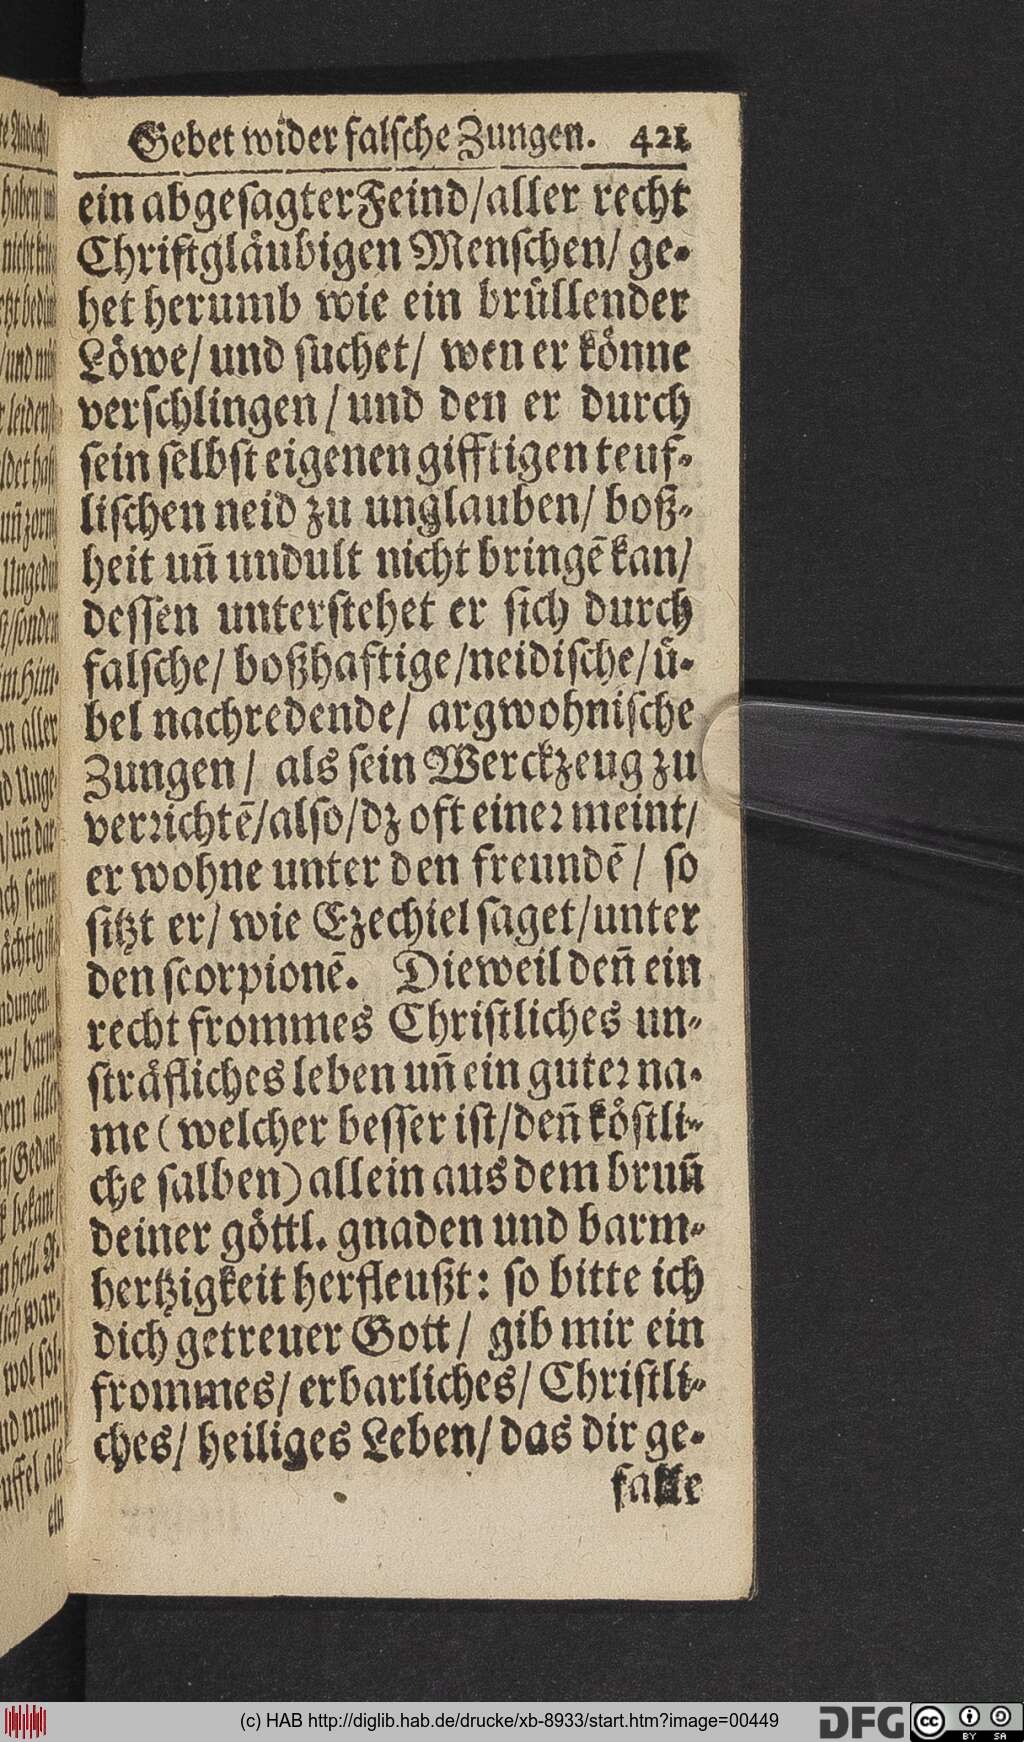 Gebet wider falsche Zungen. 421
ein abgesagter Feind/aller recht
Christgläubigen Menschen/ ge-
het herumb wie ein brüllender
Löwe/ und suchet/ wen er könne
verschlingen/ und den er durch
sein selbst eigenen gifftigen teuf-
lischen neid zu unglauben/ boß-
heit uñ undult nicht bringē kan/
dessen unterstehet er sich durch
falsche/ boßhaftige/neidische/ü-
bel nachredende/ argwohnische
Zungen/ als sein Werckzeug zu
verrichtē/also/dz oft einer meint/
er wohne unter den freundē/ so
sitzt er/ wie Ezechiel saget/unter
den scorpionē. Dieweil deñ ein
recht frommes Christliches un-
sträfliches leben uñ ein guter na-
me (welcher besser ist/deñ köstli-
che salben) allein aus dem bruñ
deiner göttl. gnaden und barm-
hertzigkeit herfleußt: so bitte ich
dich getreuer Gott/ gib mir ein
frommes/ erbarliches/ Christli-
ches/ heiliges Leben/ das dir ge-
falle
(c) HAB http://diglib.hab.de/drucke/xb-8933/start.htm?image=00449
DFG
cc BY SA